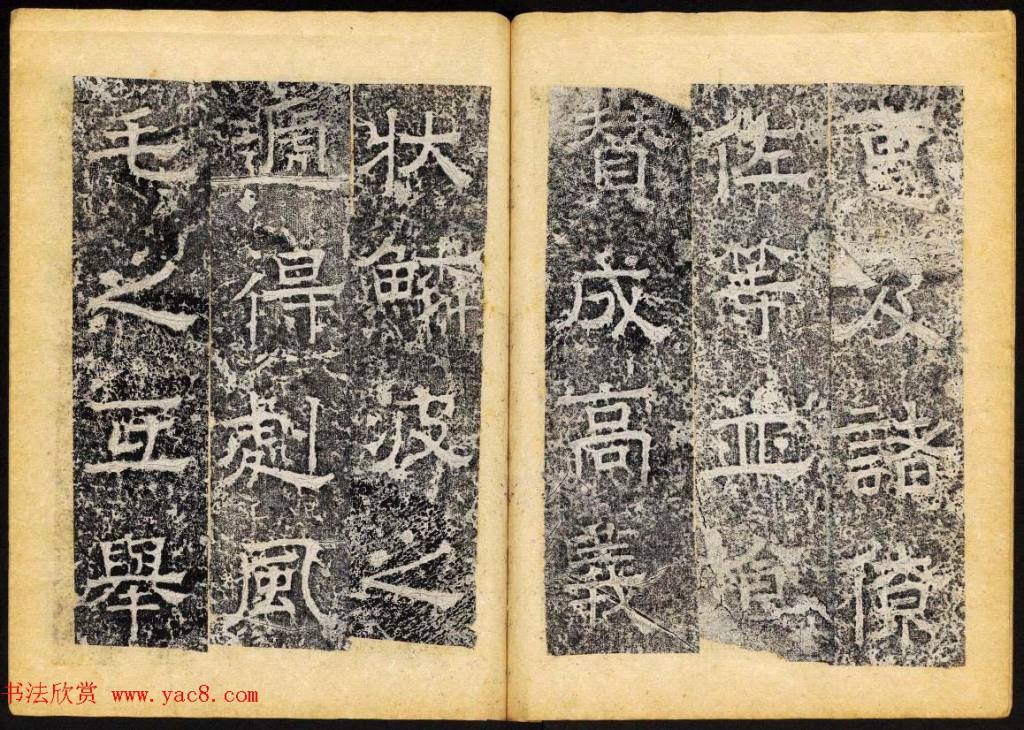 及諸僚
佐等並
替成高義
状鱗波之
遡得劇風
毛之互舉
书法欣赏 www.yac8.com